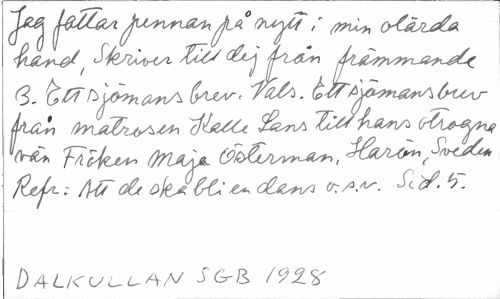 Jag fattar pennan på nytt i min olärda
hand, Skriver till dej från främmande
B. Ett sjömansbrev. Vals. Ett sjömansbrev
från matrosen Kalle Lans till hans otrogna
vän Fröken Maja Österman, Harön, Sveden
Refr: Att de ska bli en dans o.s.v. Sid. 5.
DALKULLAN SGB 1928